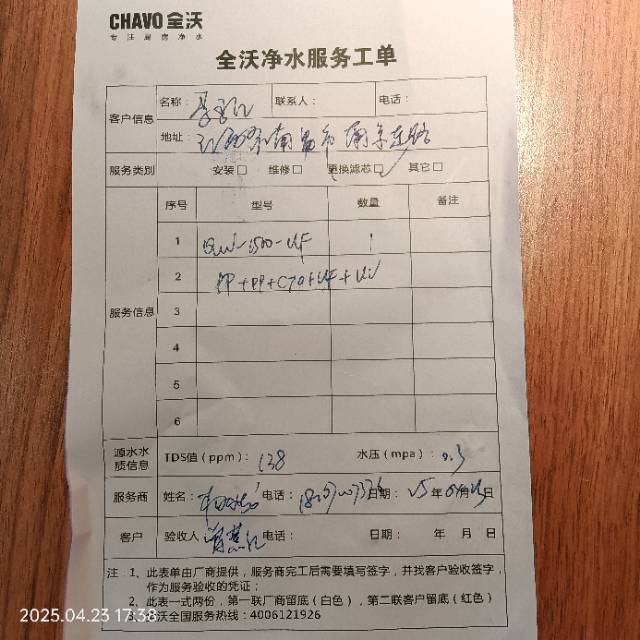 CHAVO 全沃
专 注 厨 房 净 水
全沃净水服务工单
客户信息 名称: 联系人: 电话:
地址: 江西省南昌市南京东路
服务类别 安装□ 维修□ 更换滤芯□ 其它□
序号 型号 数量 备注
1 1
2 PP+PP+CTO+UF+UV
服务信息 3
4
5
6
源水水质信息 TDS值(ppm): 138 水压(mpa): 0.3
服务商 姓名: 电话: 日期: 25年 月 日
客户 验收人 电话: 日期: 年 月 日
注:1、此表单由厂商提供,服务商完工后需要填写签字,并找客户验收签字,
作为服务验收的凭证;
2、此表一式两份,第一联厂商留底(白色),第二联客户留底(红色)
沃全国服务热线:4006121926
2025.04.23 17:38